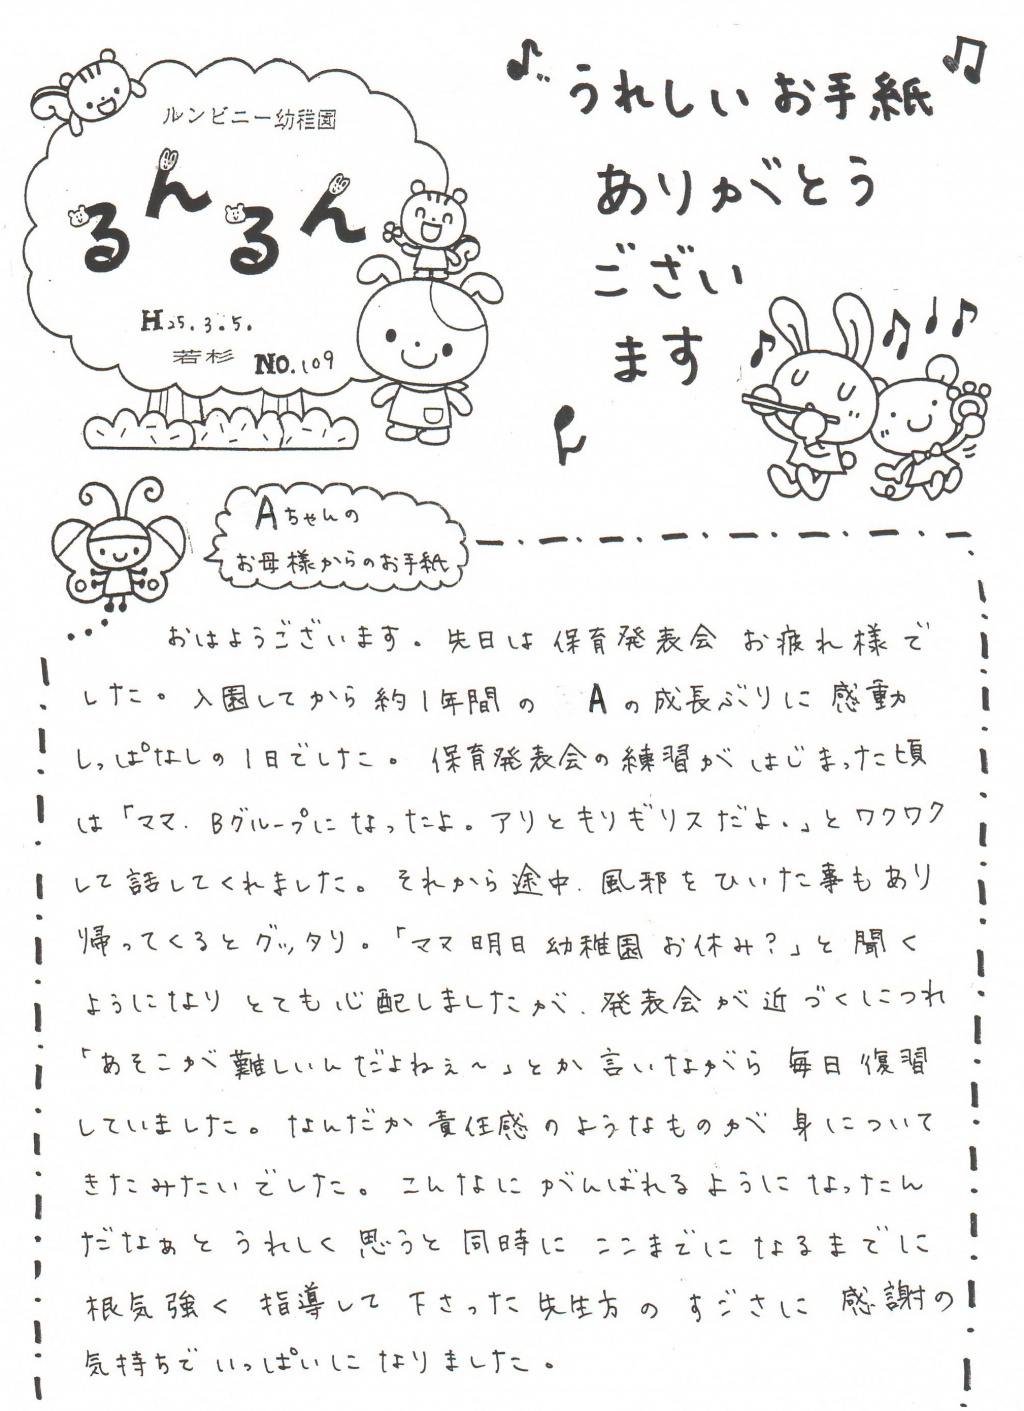 ルンビニー幼稚園
るんるん
H25.3.5.
若杉 No.109
うれしいお手紙
ありがとう
ござい
ます
Aちゃんの
お母様からのお手紙
おはようございます。先日は保育発表会 お疲れ様で
した。入園してから約1年間の Aの成長ぶりに感動
しっぱなしの1日でした。保育発表会の練習がはじまった頃
は「ママ、Bグループになったよ。アリとキリギリスだよ、」とワクワク
して話してくれました。それから途中、風邪をひいた事もあり
帰ってくるとグッタリ。「ママ明日幼稚園お休み?」と聞く
ようになりとても心配しましたが、発表会が近づくにつれ
「あそこが難しいんだよねぇ〜」とか言いながら毎日復習
していました。なんだか責任感のようなものが身について
きたみたいでした。こんなにがんばれるようになったん
だなぁとうれしく思うと同時にここまでになるまでに
根気強く指導して下さった先生方のすごさに感謝の
気持ちでいっぱいになりました。